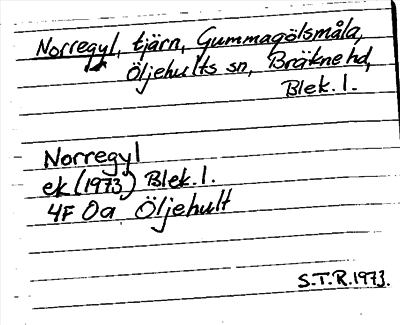 Norregyl, tjärn, Gummagölsmåla,
Öljehults sn, Bräkne hd,
Blek. l.
Norregyl
ek (1973) Blek. l.
4F 0a Öljehult
S.T.R. 1973.